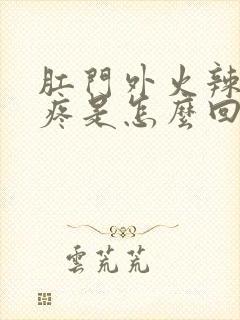 肛門外火辣
疼是怎麼回
雲芿芿